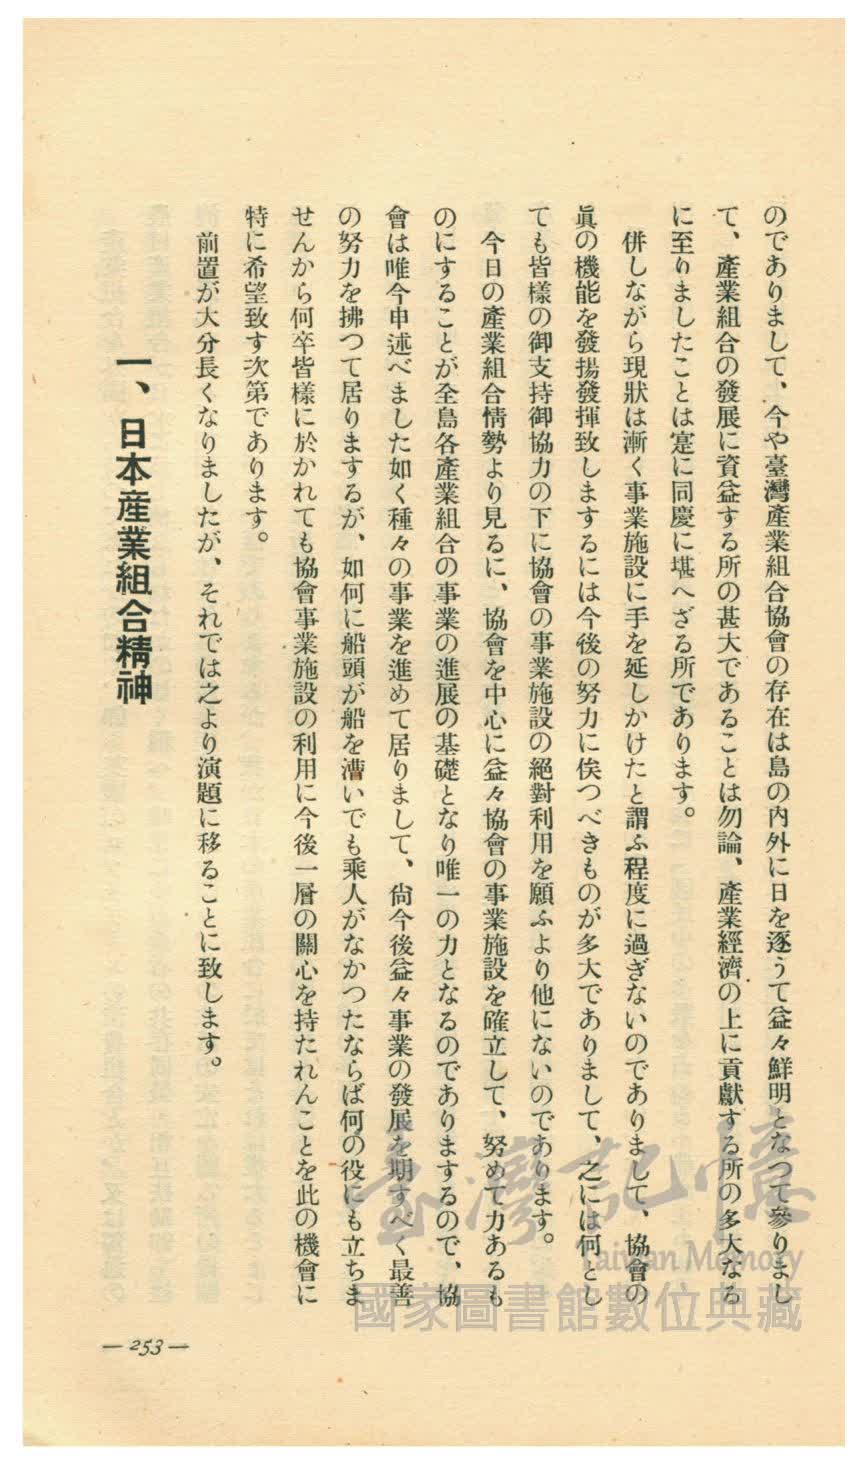 のでありまして、今や臺灣產業組合協會の存在は島の內外に日を逐うて益々鮮明となつて參りまし
て、產業組合の發展に資益する所の甚大であることは勿論、產業經濟の上に貢獻する所の多大なる
に至りましたことは寔に同慶に堪へざる所であります。
併しながら現狀は漸く事業施設に手を延しかけたと謂ふ程度に過ぎないのでありまして、協會の
眞の機能を發揚發揮致しまするには今後の努力に俟つべきものが多大でありまして、之には何とし
ても皆樣の御支持御協力の下に協會の事業施設の絕對利用を願ふより他にないのであります。
今日の產業組合情勢より見るに、協會を中心に益々協會の事業施設を確立して、努めて力あるも
のにすることが全島各產業組合の事業の進展の基礎となり唯一の力となるのでありまするので、協
會は唯今申述べました如く種々の事業を進めて居りまして、尙今後益々事業の發展を期すべく最善
の努力を拂つて居りまするが、如何に船頭が船を漕いでも乘人がなかつたならば何の役にも立ちま
せんから何卒皆樣に於かれても協會事業施設の利用に今後一層の關心を持たれんことを此の機會に
特に希望致す次第であります。
前置が大分長くなりましたが、それでは之より演題に移ることに致します。
一、日本產業組合精神
— 253 —
臺灣記憶
Taiwan Memory
國家圖書館數位典藏